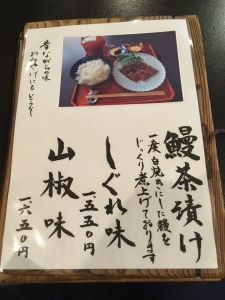 鰻茶漬け
一度白焼きにした鰻を
じっくり煮上げております
しぐれ味
一五五〇円
山椒味
一六五〇円
昔ながらの味
おみやげにもどうぞ